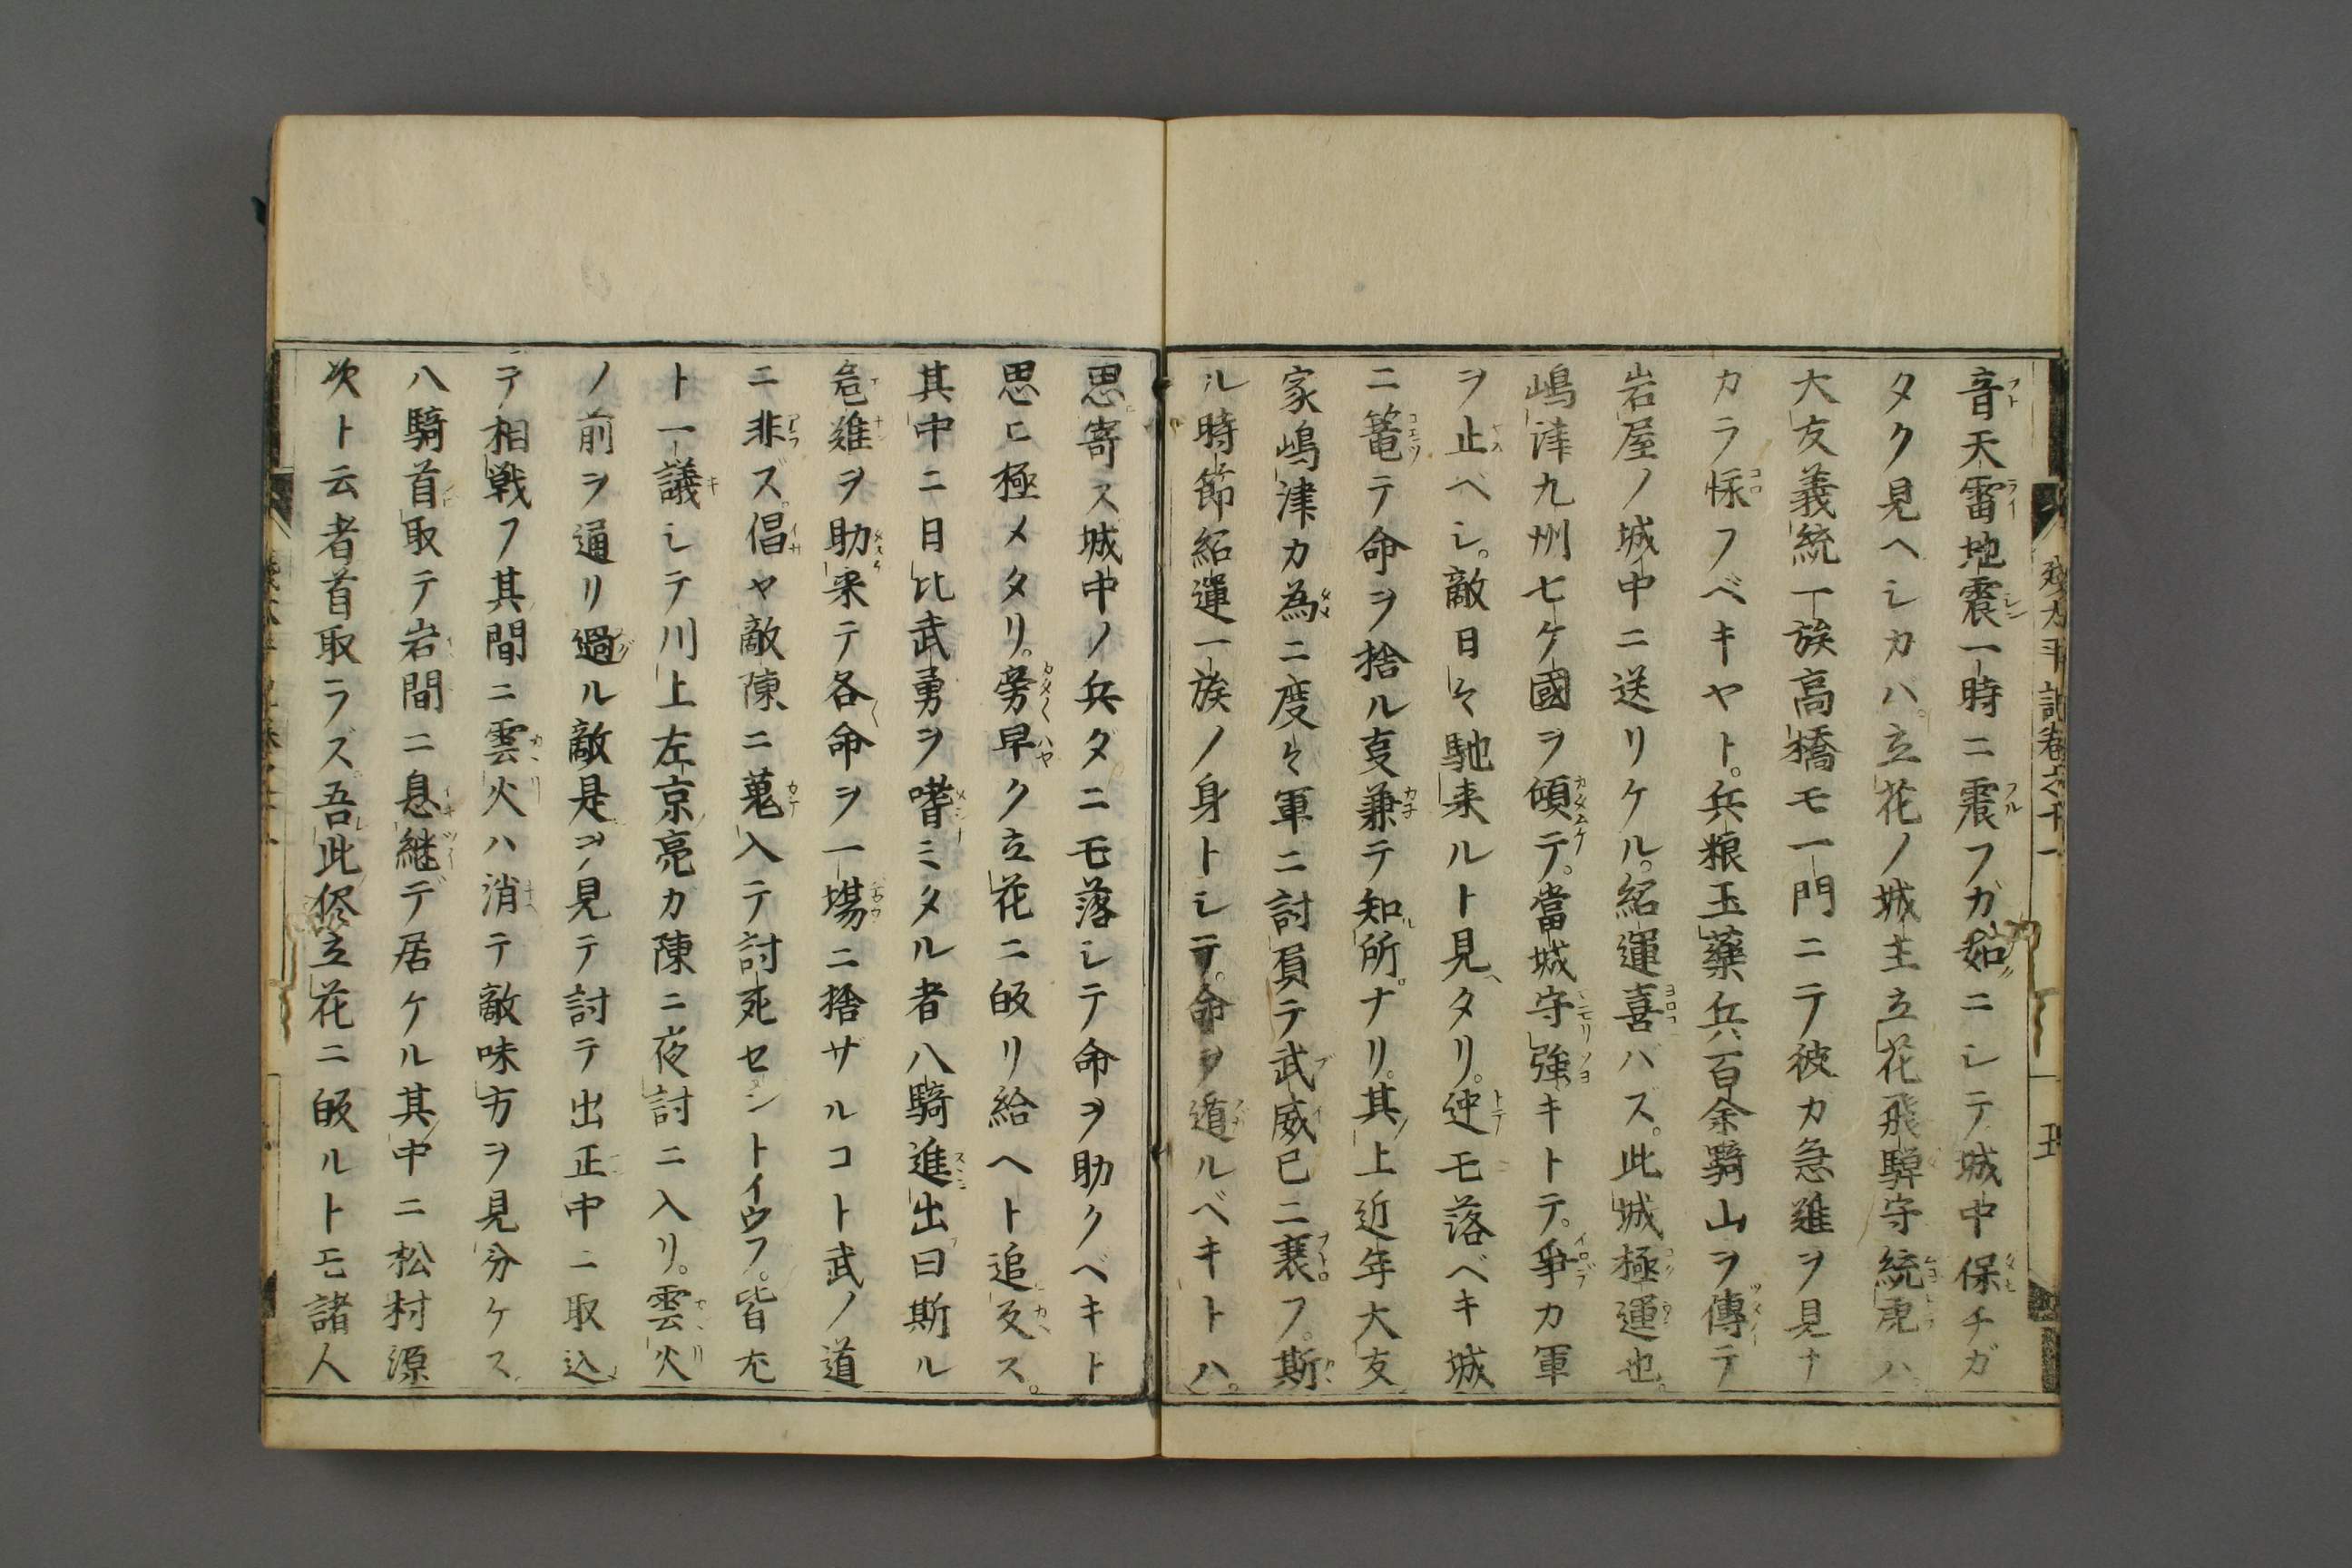 音天雷地震一時ニ震フガ如ニシテ城中保チガ
タク見ヘシカバ。立花ノ城主立花飛騨守統虎ハ。
大友義統一族高橋モ一門ニテ彼カ急難ヲ見ナ
カラ怺フベキヤト。兵粮玉薬兵百余騎山ヲ傳テ
岩屋ノ城中ニ送リケル。紹運喜バズ。此城極運也。
嶋津九州七ケ國ヲ傾テ。當城守強キトテ。争カ軍
ヲ止ベシ。敵日々馳来ルト見ヘタリ。迚モ落ベキ城
ニ篭テ命ヲ捨ル支兼テ知ル所ナリ。其上近年大友
家嶋津カ為ニ度々軍ニ討負テ武威已ニ衰フ。斯
ル時節紹運一族ノ身トシテ。命ヲ遁ルベキトハ。
思寄ス城中ノ兵ダニモ落シテ命ヲ助クベキト
思ヒ極メタリ。旁早ク立花ニ皈リ給ヘト追返ス。
其中ニ日比武勇ヲ嗜ミタル者八騎進出曰斯ル
危難ヲ助来テ各命ヲ一場ニ捨ザルコト武ノ道
ニ非ズ。倡ヤ敵陳ニ蒐入テ討死セントイウフ。皆尤
ト一議シテ川上左京亮カ陳ニ夜討ニ入リ。雲火
ノ前ヲ通リ過ル敵是ヲ見テ討テ出正中ニ取込
テ相戦フ其間ニ雲火ハ消テ敵味方ヲ見分ケス
八騎首取テ岩間ニ息継デ居ケル其中ニ松村源
次ト云者首取ラズ。吾此侭立花ニ皈ルトモ諸人